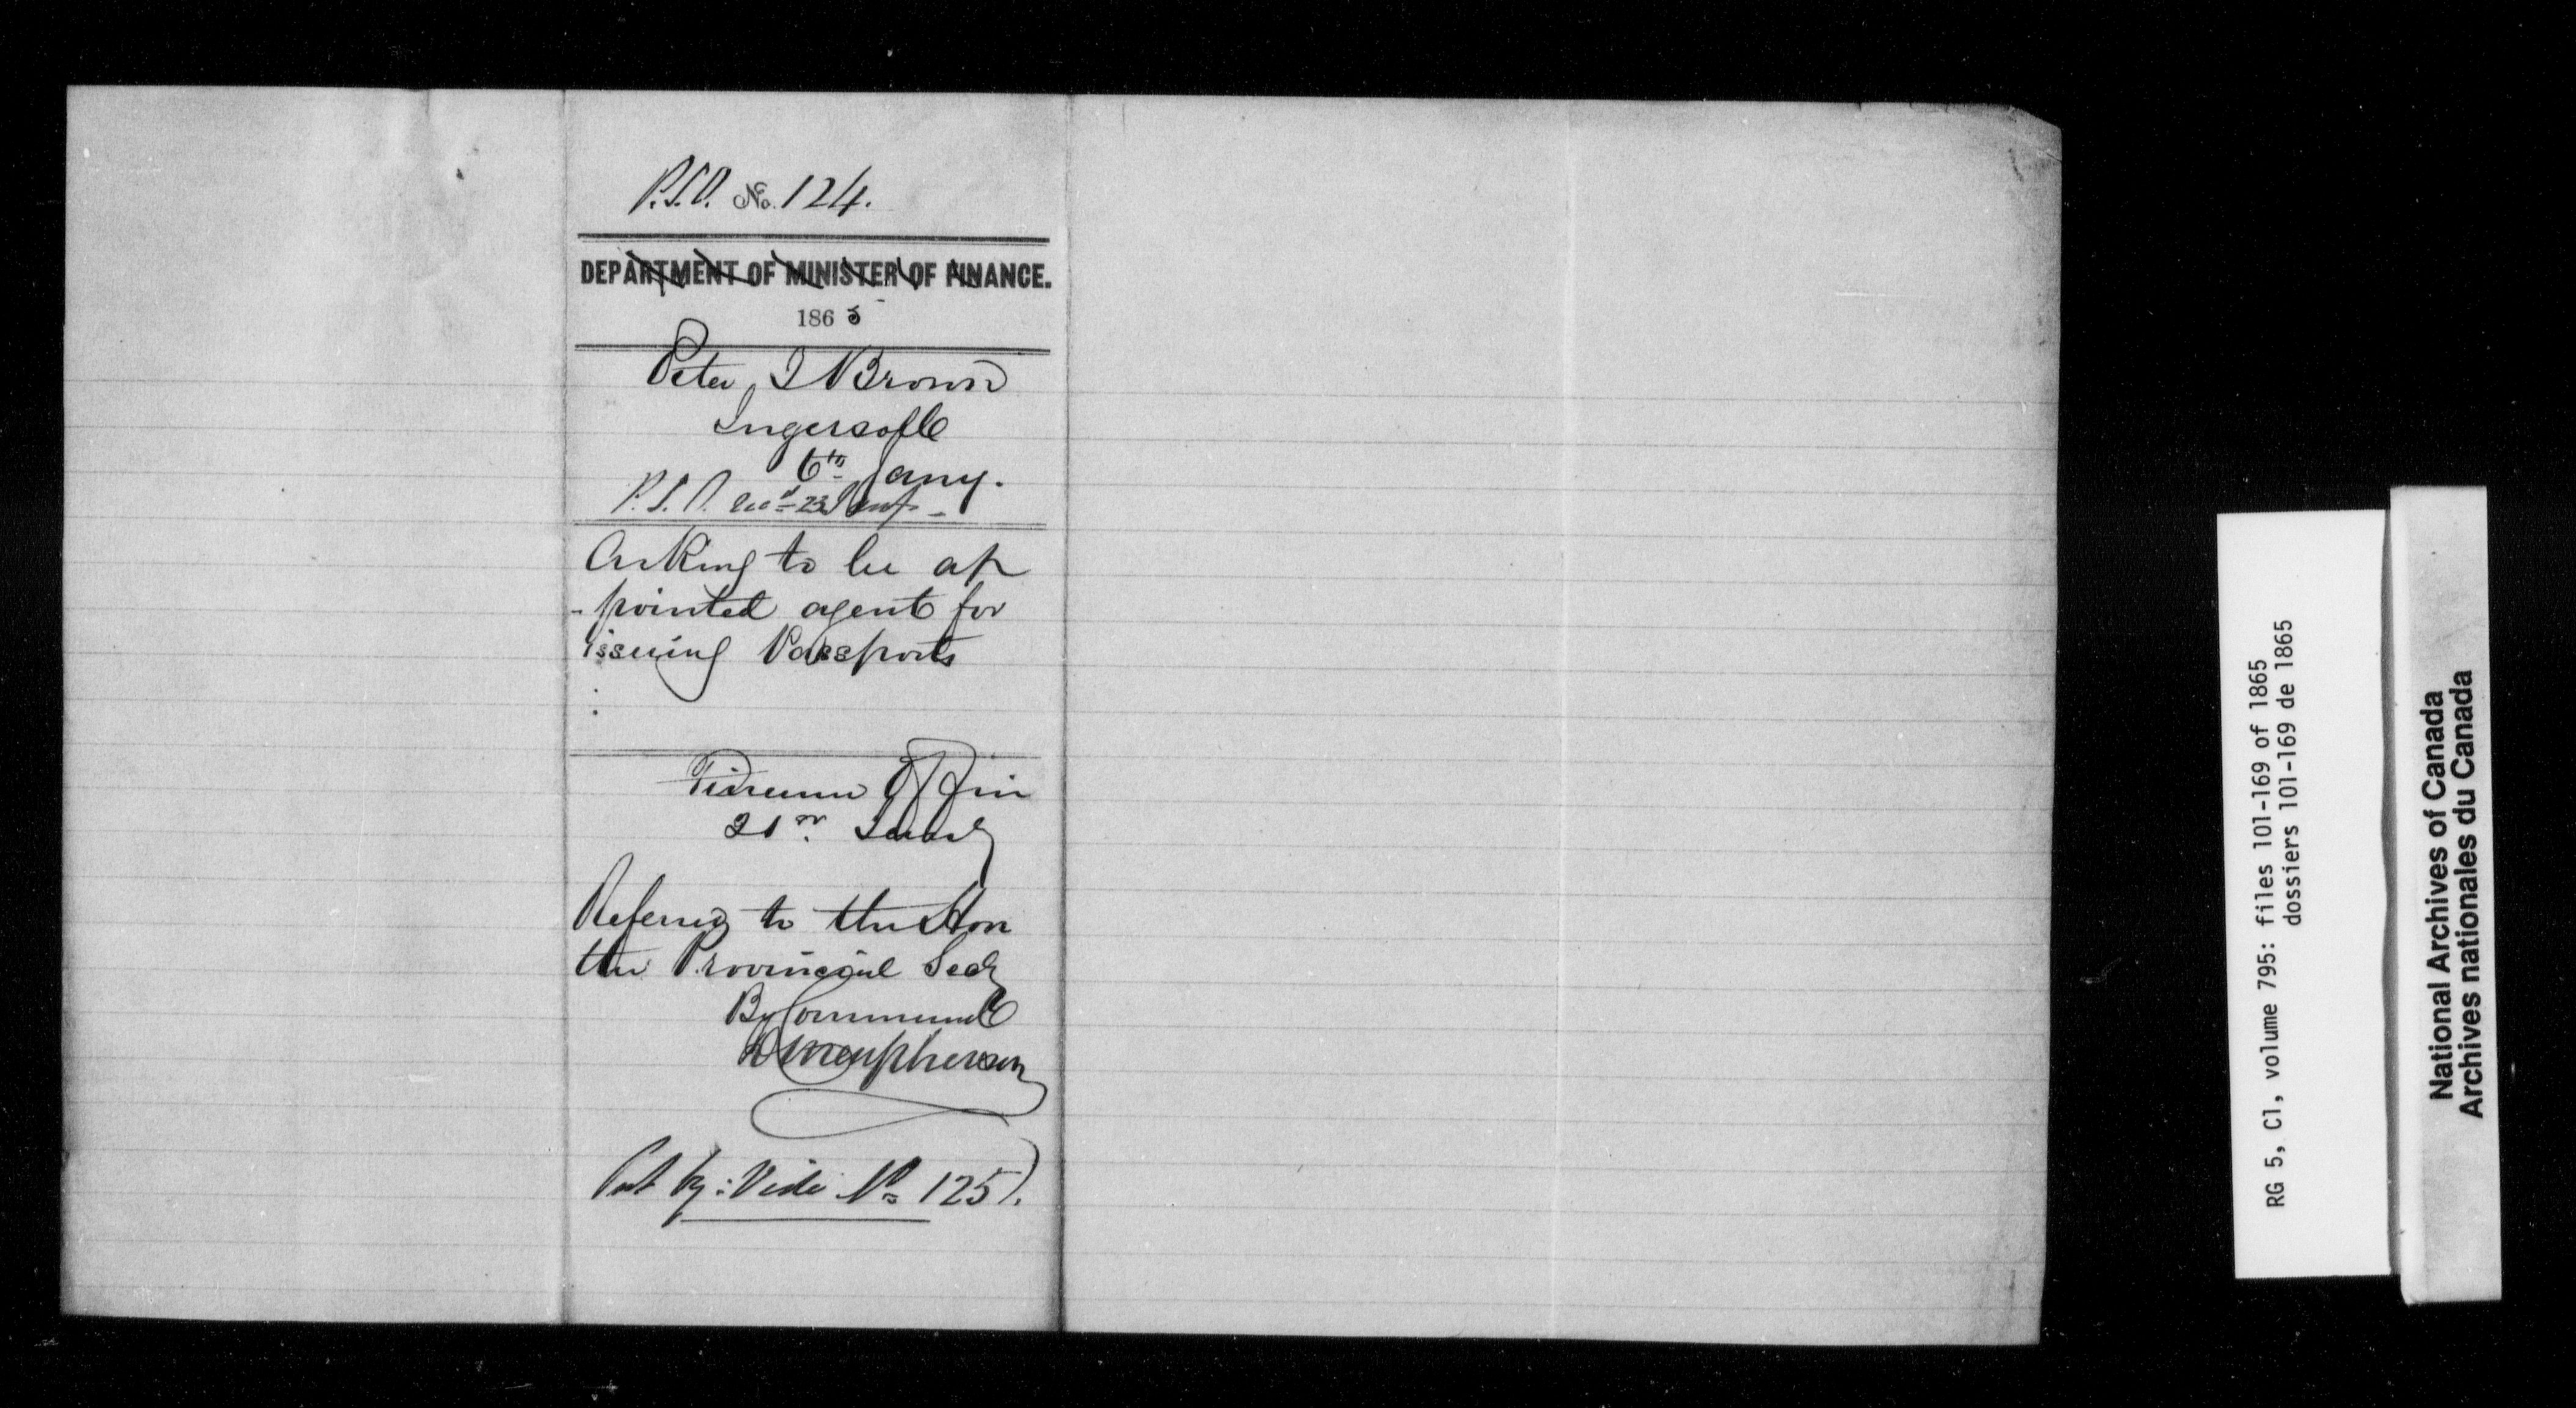 P.S.O. No. 124.
DEPARTMENT OF MINISTER OF FINANCE.
1865
Peter J Brown
Ingersoll
6th Jany.
P.S.O. Recd 23 Jany
Asking to be ap
-pointed agent for
issuing Passports
Finance
21st
Referred to the Hon
the Provincial Secy
By Command
Put by: Vide No 125).
RG 5, C1, volume 795: files 101-169 of 1865
dossiers 101-169 de 1865
National Archives of Canada
Archives nationales du Canada